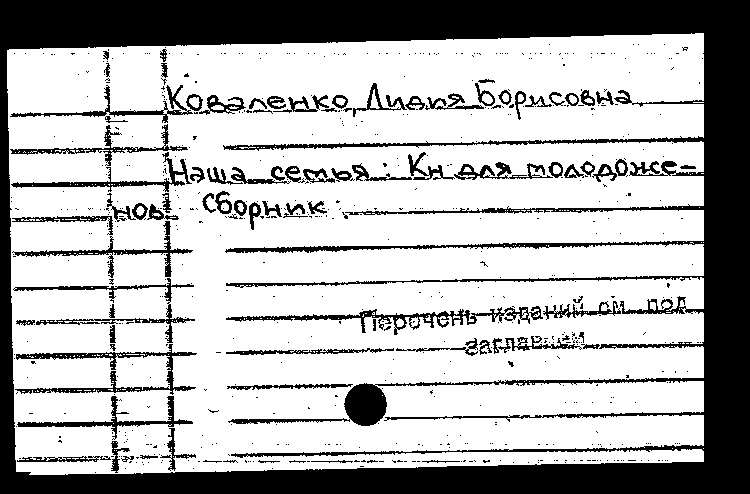 Коваленко, Лидия Борисовна
Наша семья : Кн для молодоже-
нов Сборник
Перечень изданий см. под
заглавием